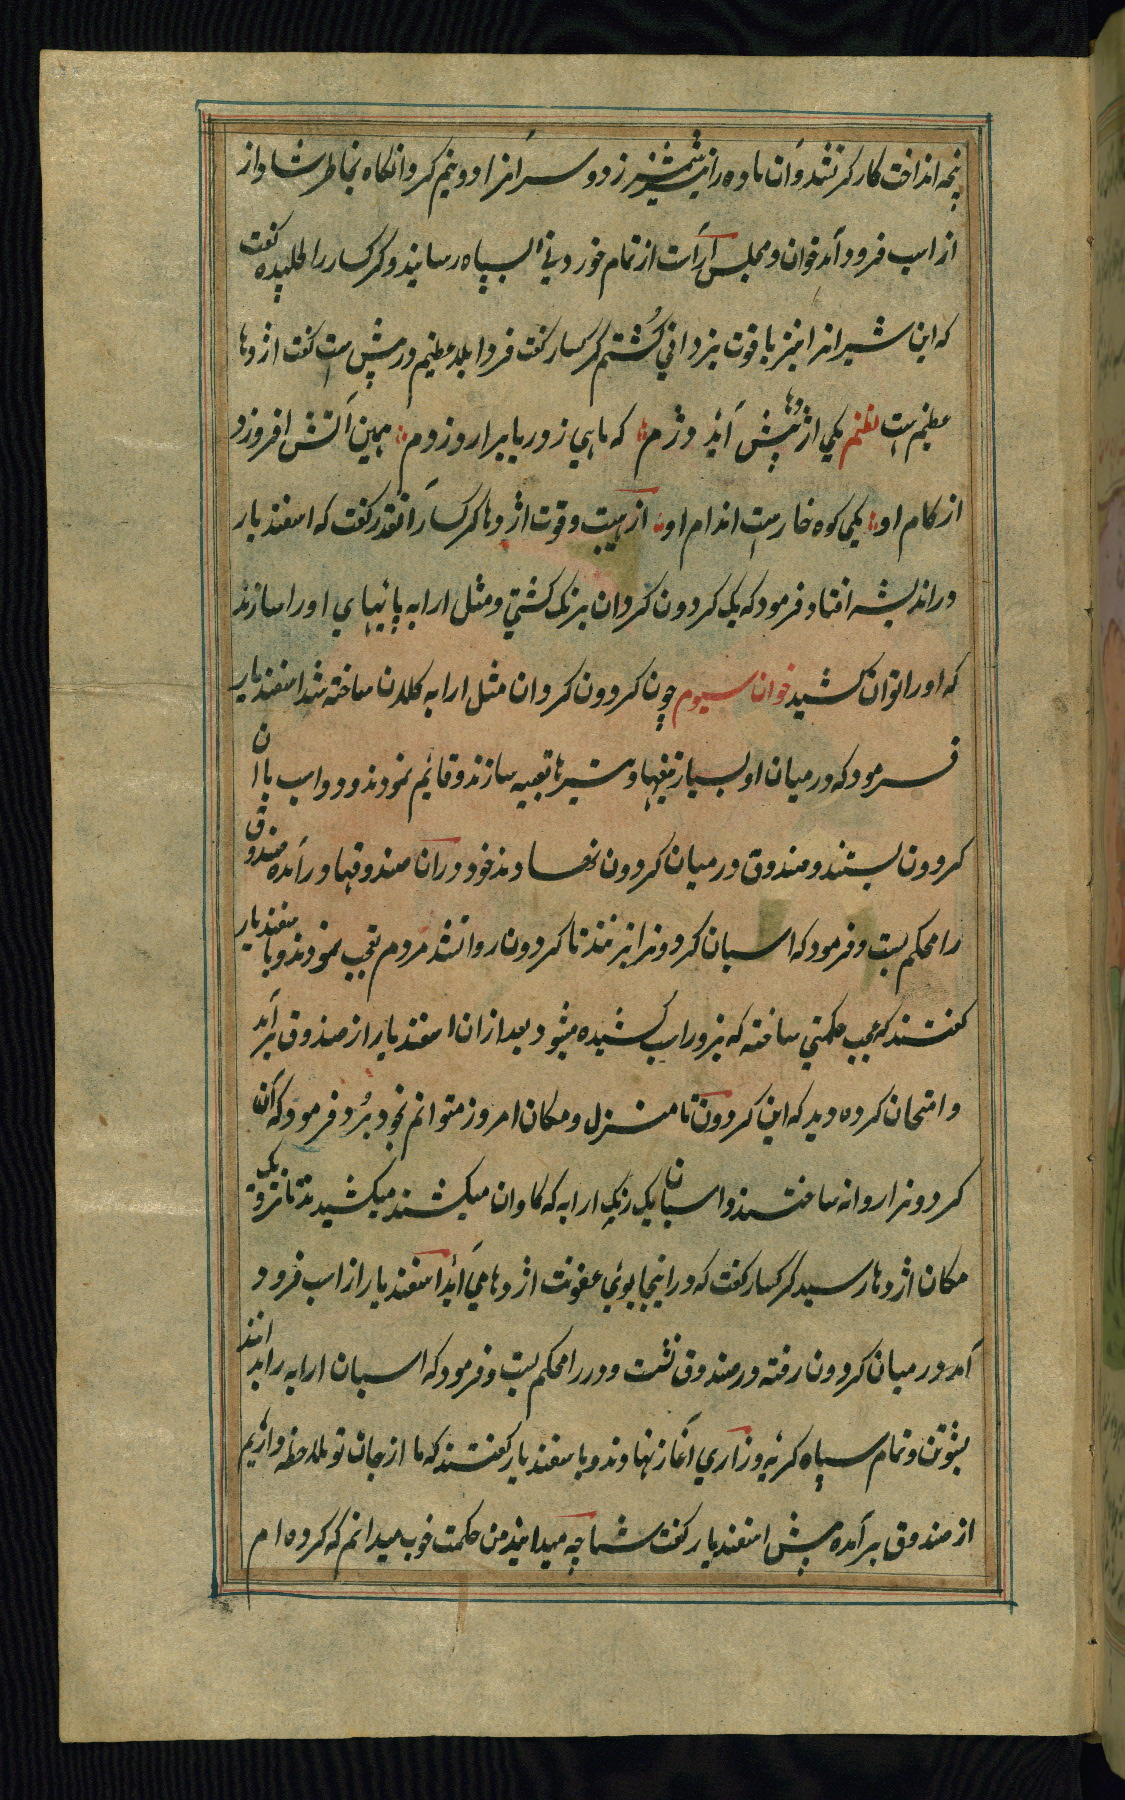 پنجه انداخت کارگر نشد و آن ماده را نیز شمشیر زد و سر آنرا دو نیم کرد انگاه بخاطر شاد از
از اسپ فرود آمد خوان و مجلس آراست از تمام خوردنی السپاه رسانید و گرگسار را طلبیده گفت
که این شیرانرا نیز با قوت یزدانی کُشتم گرگسار گفت فردا بلا عظیم در پیش است گفت اژدها
عظیم است نظم یکی اژدها پیش آید دژم که ماهی ز دریا برارد ز دم همین آتش افروزد
از کام او یکی کوه خارست اندام او از هیبت و قوت اژدها گرگسار آنقدر گفت که اسفندیار
در اندیشه افتاد فرمود که یک گردون گردان برنک کشتی و مثل ارابه پائیهای او را سازند
که او را توان کشید خوان سیوم چون گردون گردان مثل ارابه کلان ساخته شد اسفندیار
فرمود که در میان او بسیار تیغها و تیرها تعبیه سازند و قائیم نمودند و دو اسپ با آن
گردون بستند و صندوق در میان گردون نهادند خود در آن صندوقها در آمده صندوق
را محکم بست و فرمود که اسبان گردونرا برانند تا گردون روانشد مردم تعجب نمودند و با اسفندیار
گفتند که عجب حکمتی ساخته که بزور اسپ کشیده میشود بعد ازان اسفندیار از صندوق برآمد
و امتحان کرده دید که این گردون تا منزل و مکان امروز متوانم بخود بُرد فرمود که آن
گردونرا روانه ساختند و اسبان یک رنگ ارابه که گاوان میکشند میکشیدند تا نزدیک
مکان اژدها رسید گرگسار گفت که در اینجا بوئی عفونت اژدها می آید اسفندیار از اسپ فرود
آمد در میان گردون رفته در صندوق نشست و در را محکم بست و فرمود که اسبان ارابه را براند
بشوتن و تمام سپاه گریه و زاری آغاز نهادند و با اسفندیار گفتند که ما از جان تو ملاحظه داریم
از صندوق برآمده پیش اسفندیار گفت شما چه میدانید من حکمت خوب میدانم که کرده ام